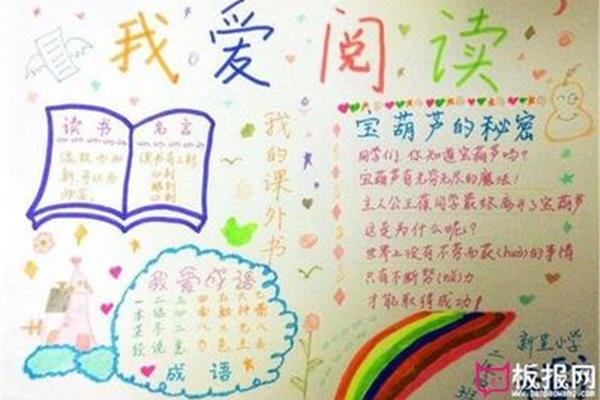 我爱阅读
读书 名言
温故而知
新,可以为
师矣。
读书有三到
我的课外书
宝葫芦的秘密
同学们,你知道宝葫芦吗?
宝葫芦有无穷无尽的魔法!
主人公王葆同学最终离开了宝葫芦
这是为什么呢?
世界上没有不劳而获(huò)的事情
只有不断努(nǔ)力
才能取得成功!
我爱成语
成语
新星小学
板报网
www.banbaowang.com